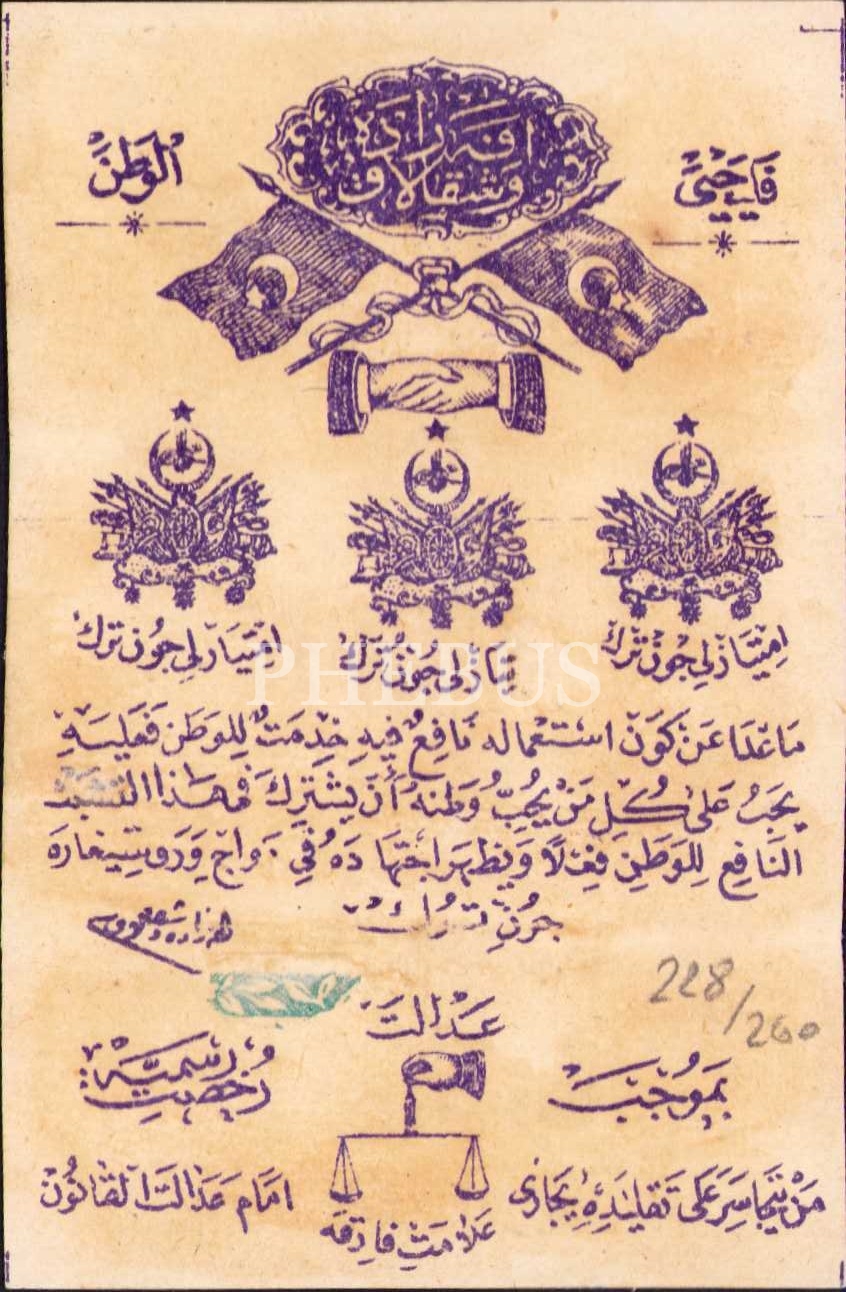 فليحيى
الوطن
امتيازلي جون ترك
يازلي جون ترك
امتيازلي جون ترك
PHEBUS
مَاعَدَا عَنْ كَوْنَ استعماله نَافِعٌ فِيهِ خِدمَتٌ لِلوَطَنِ فَعَليهِ
يجبُ عَلَىٰ كُلِ مَنْ يُحِبُّ وَطنهُ أَنْ يشتركَ في هذا
النافِع لِلوَطَنِ فِعْلاً وَيظهر اجتهادَهُ فِي رواج وَرَق سيغارة
جونِ تورك
228/260
عدالت
بموجب
رخصتِ رسميّة
مَنْ يتجاسر على تقليدهِ يجازى
امام عدالت القانون
علامت فارقه